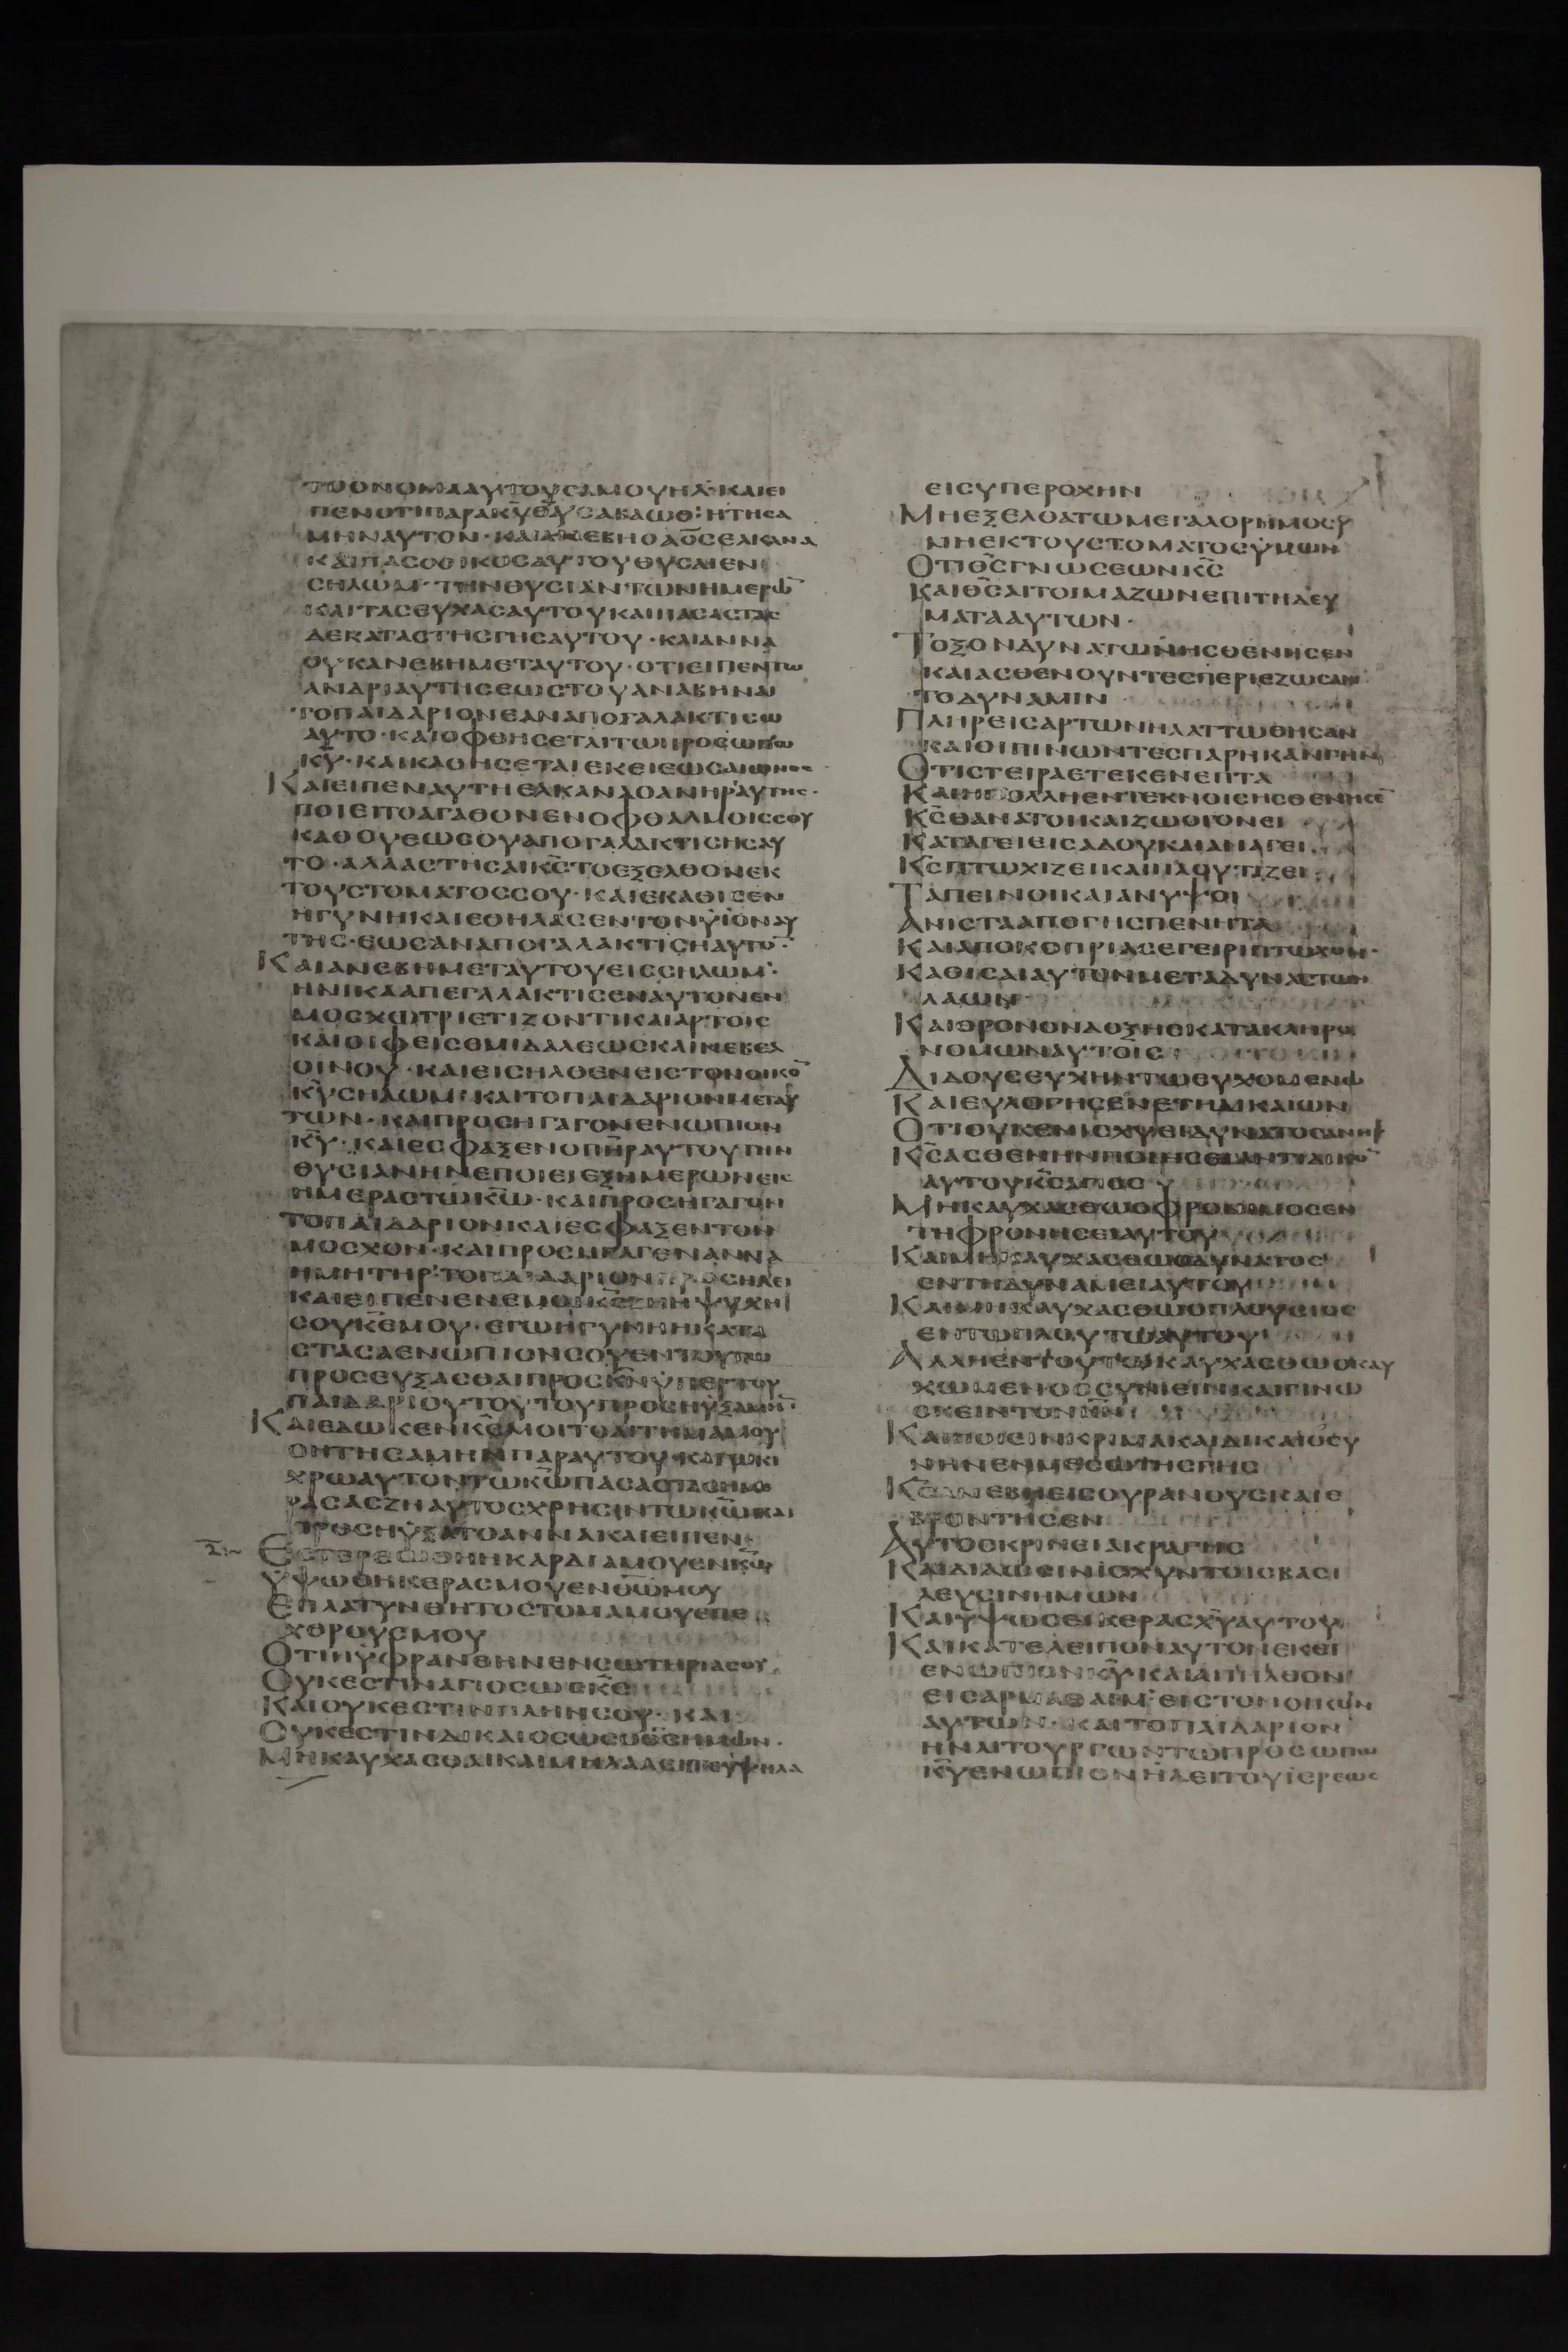 ΤΟΟΝΟΜΑΑΥΤΟΥϹΑΜΟΥΗΛ·ΚΑΙΕΙ
ΠΕΝΟΤΙΠΑΡΑΚ̅Υ̅Θ̅Υ̅ϹΑΒΑΩΘ·ΗΤΗϹΑ
ΜΗΝΑΥΤΟΝ·ΚΑΙΑΝΕΒΗΟΑΟϹΕΛΚΑΝΑ
ΚΑΙΠΑϹΟΟΙΚΟϹΑΥΤΟΥΘΥϹΑΙΕΝ
ϹΗΛΩΜ·ΤΗΝΘΥϹΙΑΝΤΩΝΗΜΕΡΩ̅
ΚΑΙΤΑϹΕΥΧΑϹΑΥΤΟΥΚΑΙΠΑϹΑϹΤΑϹ
ΔΕΚΑΤΑϹΤΗϹΓΗϹΑΥΤΟΥ·ΚΑΙΑΝΝΑ
ΟΥΚΑΝΕΒΗΜΕΤΑΥΤΟΥ·ΟΤΙΕΙΠΕΝΤΩ
ΑΝΔΡΙΑΥΤΗϹΕΩϹΤΟΥΑΝΑΒΗΝΑΙ
ΤΟΠΑΙΔΑΡΙΟΝΕΑΝΑΠΟΓΑΛΑΚΤΙϹΩ
ΑΥΤΟ·ΚΑΙΟΦΘΗϹΕΤΑΙΤΩΠΡΟϹΩΠΩ
Κ̅Υ̅·ΚΑΙΚΑΘΗϹΕΤΑΙΕΚΕΙΕΩϹΑΙΩΝΟϹ
ΚΑΙΕΙΠΕΝΑΥΤΗΕΛΚΑΝΑΟΑΝΗΡΑΥΤΗϹ·
ΠΟΙΕΙΤΟΑΓΑΘΟΝΕΝΟΦΘΑΛΜΟΙϹϹΟΥ
ΚΑΘΟΥΕΩϹΟΥΑΠΟΓΑΛΑΚΤΙϹΗϹΑΥ
ΤΟ·ΑΛΛΑϹΤΗϹΑΙΚ̅Ϲ̅ΤΟΕΞΕΛΘΟΝΕΚ
ΤΟΥϹΤΟΜΑΤΟϹϹΟΥ·ΚΑΙΕΚΑΘΙϹΕΝ
ΗΓΥΝΗΚΑΙΕΘΗΛΑϹΕΝΤΟΝΥΙΟΝΑΥ
ΤΗϹ·ΕΩϹΑΝΑΠΟΓΑΛΑΚΤΙϹΗΑΥΤΟ·
ΚΑΙΑΝΕΒΗΜΕΤΑΥΤΟΥΕΙϹϹΗΛΩΜ·
ΗΝΙΚΑΑΠΕΓΑΛΑΚΤΙϹΕΝΑΥΤΟΝΕΝ
ΜΟϹΧΩΤΡΙΕΤΙΖΟΝΤΙΚΑΙΑΡΤΟΙϹ
ΚΑΙΟΙΦΕΙϹΕΜΙΔΑΛΕΩϹΚΑΙΝΕΒΕΛ
ΟΙΝΟΥ·ΚΑΙΕΙϹΗΛΘΕΝΕΙϹΤΟΝΟΙΚΟ̅
Κ̅Υ̅ϹΗΛΩΜ·ΚΑΙΤΟΠΑΙΔΑΡΙΟΝΜΕΤΑΥ
ΤΩΝ·ΚΑΙΠΡΟϹΗΓΑΓΟΝΕΝΩΠΙΟΝ
Κ̅Υ̅·ΚΑΙΕϹΦΑΞΕΝΟΠ̅Η̅Ρ̅ΑΥΤΟΥΤΗΝ
ΘΥϹΙΑΝΗΝΕΠΟΙΕΙΕΞΗΜΕΡΩΝΕΙϹ
ΗΜΕΡΑϹΤΩΚ̅Ω̅·ΚΑΙΠΡΟϹΗΓΑΓΟΝ
ΤΟΠΑΙΔΑΡΙΟΝΚΑΙΕϹΦΑΞΕΝΤΟΝ
ΜΟϹΧΟΝ·ΚΑΙΠΡΟϹΗΓΑΓΕΝΑΝΝΑ
ΗΜΗΤΗΡΤΟΠΑΙΔΑΡΙΟΝΠΡΟϹΗΛΕΙ
ΚΑΙΕΙΠΕΝΕΝΕΜΟΙΚ̅Ε̅ΖΗΗΨΥΧΗ
ϹΟΥΚ̅Ε̅ΜΟΥ·ΕΓΩΗΓΥΝΗΗΚΑΤΑ
ϹΤΑϹΑΕΝΩΠΙΟΝϹΟΥΕΝΤΟΥΤΩ
ΠΡΟϹΕΥΞΑϹΘΑΙΠΡΟϹΚ̅Ν̅ΥΠΕΡΤΟΥ
ΠΑΙΔΑΡΙΟΥΤΟΥΤΟΥΠΡΟϹΗΥΞΑΜΗ̅·
ΚΑΙΕΔΩΚΕΝΚ̅Ϲ̅ΜΟΙΤΟΑΙΤΗΜΑΜΟΥ
ΟΗΤΗϹΑΜΗΝΠΑΡΑΥΤΟΥ·ΚΑΓΩΚΙ
ΧΡΩΑΥΤΟΝΤΩΚ̅Ω̅ΠΑϹΑϹΤΑϹΗΜΕ
ΡΑϹΑϹΖΗΑΥΤΟϹΧΡΗϹΙΝΤΩΚ̅Ω̅ΚΑΙ
ΠΡΟϹΗΥΞΑΤΟΑΝΝΑΚΑΙΕΙΠΕΝ
ΕϹΤΕΡΕΩΘΗΗΚΑΡΔΙΑΜΟΥΕΝΚ̅Ω̅
ΥΨΩΘΗΚΕΡΑϹΜΟΥΕΝΘ̅Ω̅ΜΟΥ
ΕΠΛΑΤΥΝΘΗΤΟϹΤΟΜΑΜΟΥΕΠΕ
ΧΘΡΟΥϹΜΟΥ
ΟΤΙΗΥΦΡΑΝΘΗΝΕΝϹΩΤΗΡΙΑϹΟΥ
ΟΥΚΕϹΤΙΝΑΓΙΟϹΩϹΚ̅Ϲ̅
ΚΑΙΟΥΚΕϹΤΙΝΠΛΗΝϹΟΥ·ΚΑΙ
ΟΥΚΕϹΤΙΝΔΙΚΑΙΟϹΩϹΟΘ̅Ϲ̅ΗΜΩΝ·
ΜΗΚΑΥΧΑϹΘΑΙΚΑΙΜΗΛΑΛΕΙΤΕΥΨΗΛΑ
ΕΙϹΥΠΕΡΟΧΗΝ
ΜΗΕΞΕΛΘΑΤΩΜΕΓΑΛΟΡΗΜΟϹΥ
ΝΗΕΚΤΟΥϹΤΟΜΑΤΟϹΥΜΩΝ
ΟΤΙΘ̅Ϲ̅ΓΝΩϹΕΩΝΚ̅Ϲ̅
ΚΑΙΘ̅Ϲ̅ΑΙΤΟΙΜΑΖΩΝΕΠΙΤΗΔΕΥ
ΜΑΤΑΑΥΤΩΝ·
ΤΟΞΟΝΔΥΝΑΤΩΝΗϹΘΕΝΗϹΕΝ
ΚΑΙΑϹΘΕΝΟΥΝΤΕϹΠΕΡΙΕΖΩϹΑΝ
ΤΟΔΥΝΑΜΙΝ
ΠΛΗΡΕΙϹΑΡΤΩΝΗΛΑΤΤΩΘΗϹΑΝ
ΚΑΙΟΙΠΙΝΩΝΤΕϹΠΑΡΗΚΑΝΓΗΝ
ΟΤΙϹΤΕΙΡΑΕΤΕΚΕΝΕΠΤΑ
ΚΑΙΗΠΟΛΛΗΕΝΤΕΚΝΟΙϹΗϹΘΕΝΗϹΕ̅
Κ̅Ϲ̅ΘΑΝΑΤΟΙΚΑΙΖΩΟΓΟΝΕΙ
ΚΑΤΑΓΕΙΕΙϹΑΔΟΥΚΑΙΑΝΑΓΕΙ
Κ̅Ϲ̅ΠΤΩΧΙΖΕΙΚΑΙΠΛΟΥΤΙΖΕΙ
ΤΑΠΕΙΝΟΙΚΑΙΑΝΥΨΟΙ
ΑΝΙϹΤΑΑΠΟΓΗϹΠΕΝΗΤΑ
ΚΑΙΑΠΟΚΟΠΡΙΑϹΕΓΕΙΡΙΠΤΩΧΟΝ·
ΚΑΘΙϹΑΙΑΥΤΟΝΜΕΤΑΔΥΝΑϹΤΩΝ
ΛΑΩΝ
ΚΑΙΘΡΟΝΟΝΔΟΞΗϹΚΑΤΑΚΛΗΡΟ
ΝΟΜΩΝΑΥΤΟΙϹ
ΔΙΔΟΥϹΕΥΧΗΝΤΩΕΥΧΟΜΕΝΩ
ΚΑΙΕΥΛΟΓΗϹΕΝΕΤΗΔΙΚΑΙΩΝ
ΟΤΙΟΥΚΕΝΙϹΧΥΕΙΔΥΝΑΤΟϹΑΝΗΡ
Κ̅Ϲ̅ΑϹΘΕΝΗΝΠΟΙΗϹΕΙΑΝΤΙΔΙΚΟ̅
ΑΥΤΟΥΚ̅Ϲ̅ΑΓΙΟϹ
ΜΗΚΑΥΧΑϹΘΩΟΦΡΟΝΙΜΟϹΕΝ
ΤΗΦΡΟΝΗϹΕΙΑΥΤΟΥ
ΚΑΙΜΗΚΑΥΧΑϹΘΩΟΔΥΝΑΤΟϹ
ΕΝΤΗΔΥΝΑΜΕΙΑΥΤΟΥ
ΚΑΙΜΗΚΑΥΧΑϹΘΩΟΠΛΟΥϹΙΟϹ
ΕΝΤΩΠΛΟΥΤΩΑΥΤΟΥ
ΑΛΛΗΕΝΤΟΥΤΩΚΑΥΧΑϹΘΩΟΚΑΥ
ΧΩΜΕΝΟϹϹΥΝΙΕΙΝΚΑΙΓΙΝΩ
ϹΚΕΙΝΤΟΝΚ̅Ν̅
ΚΑΙΠΟΙΕΙΝΚΡΙΜΑΚΑΙΔΙΚΑΙΟϹΥ
ΝΗΝΕΝΜΕϹΩΤΗϹΓΗϹ
Κ̅Ϲ̅ΑΝΕΒΗΕΙϹΟΥΡΑΝΟΥϹΚΑΙΕ
ΒΡΟΝΤΗϹΕΝ
ΑΥΤΟϹΚΡΙΝΕΙΑΚΡΑΓΗϹ
ΚΑΙΔΙΔΩϹΙΝΙϹΧΥΝΤΟΙϹΒΑϹΙ
ΛΕΥϹΙΝΗΜΩΝ
ΚΑΙΥΨΩϹΕΙΚΕΡΑϹΧ̅Υ̅ΑΥΤΟΥ
ΚΑΙΚΑΤΕΛΕΙΠΟΝΑΥΤΟΝΕΚΕΙ
ΕΝΩΠΙΟΝΚ̅Υ̅·ΚΑΙΑΠΗΛΘΟΝ
ΕΙϹΑΡΜΑΘΑΙΜ·ΕΙϹΤΟΝΟΙΚΟΝ
ΑΥΤΩΝ·ΚΑΙΤΟΠΑΙΔΑΡΙΟΝ
ΗΝΛΙΤΟΥΡΓΩΝΤΩΠΡΟϹΩΠΩ
Κ̅Υ̅ΕΝΩΠΙΟΝΗΛΕΙΤΟΥΙΕΡΕΩϹ